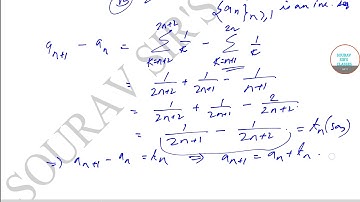 {aₙ}ₙ≥₁ is an inc. seq
aₙ₊₁ − aₙ = ∑_{k=n+2}^{2n+2} 1/k − ∑_{k=n+1}^{2n} 1/k
= 1/(2n+2) + 1/(2n+1) − 1/(n+1)
= 1/(2n+2) + 1/(2n+1) − 2/(2n+2)
= 1/(2n+1) − 1/(2n+2) = tₙ (say)
⇒) aₙ₊₁ − aₙ = tₙ ⇒ aₙ₊₁ = aₙ + tₙ .
SOURAV SIR'S